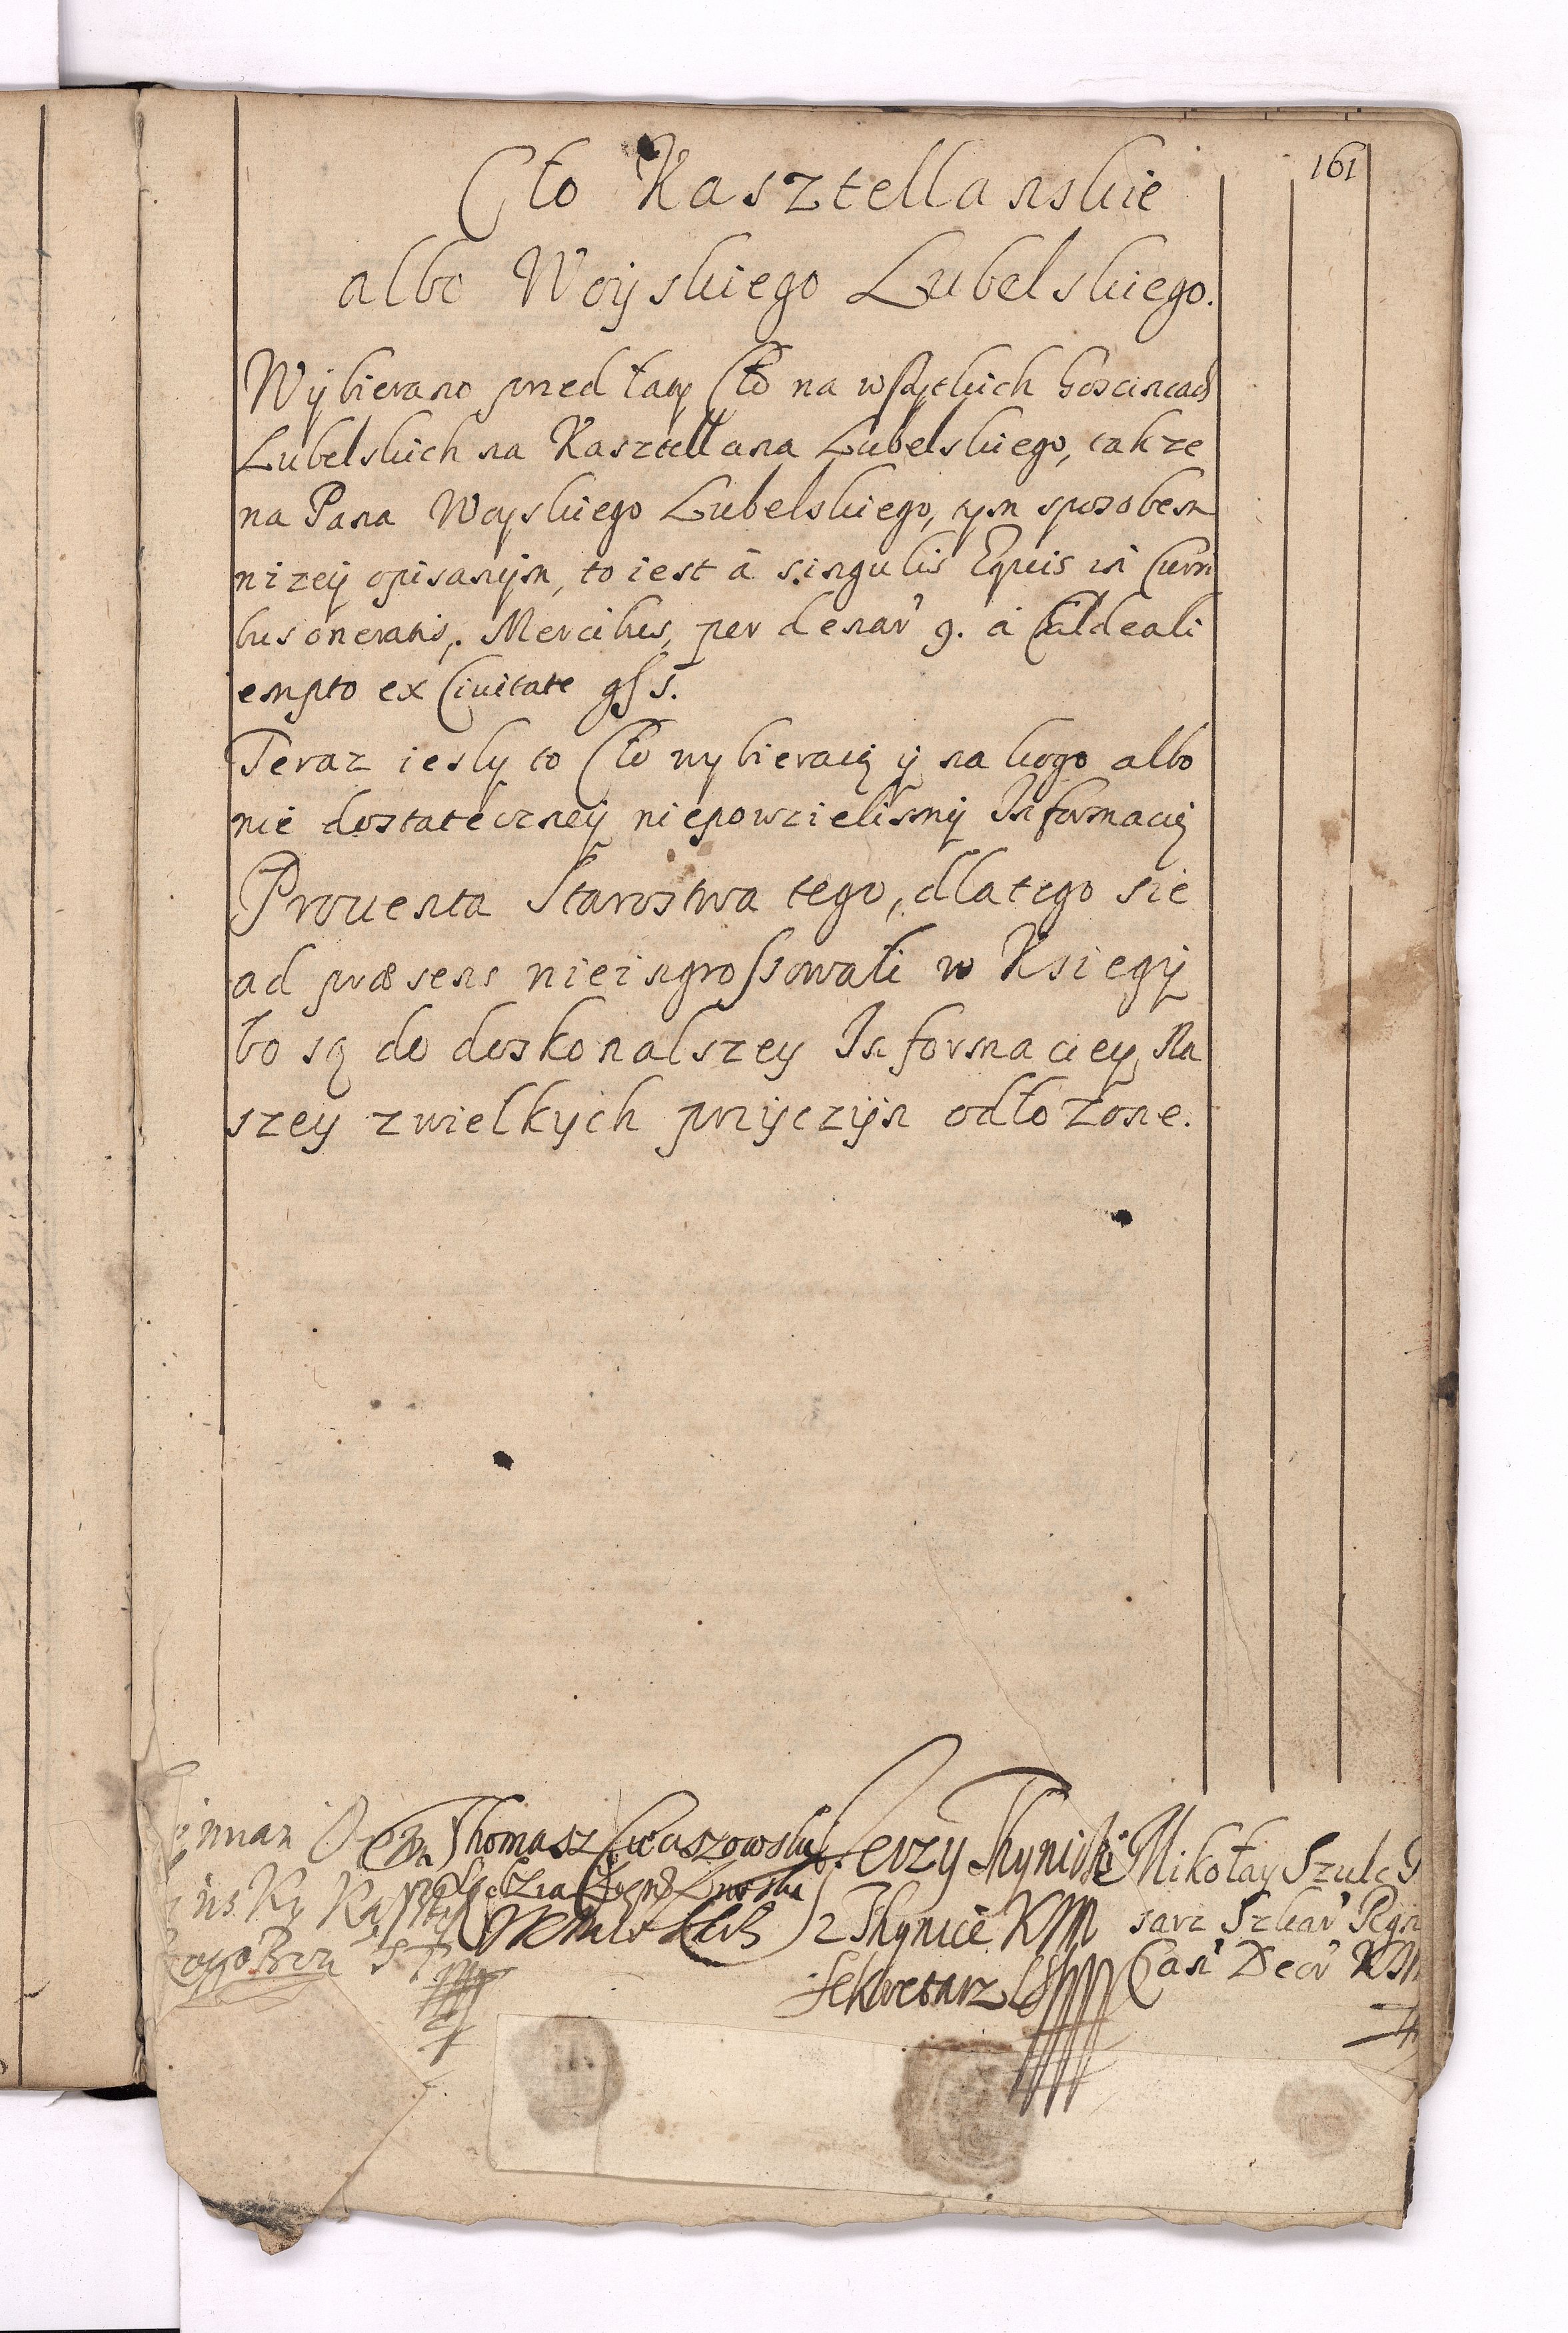 161
Cło Kasztellanskie
albo Woyskiego Lubelskiego.
Wÿbierano przed laty Cło na wszytkich Goscincach
Lubelskich na Kasztellana Lubelskiego, takze
na Pana Woyskiego Lubelskiego, tym sposobem
nizeÿ opisanÿm, to iest à singulis Equis in Curri
bus oneratis, Mercibus, per denar 9. à Caldeali
empto ex Ciuitate gſ 1.
Teraz iesly to Cło wybieraią ÿ na kogo albo
nie dostateczneÿ niepowzielismÿ Informacÿ
Prouenta Starostwa tego, dlatego sie
ad præsens nieingrossowali w Ksiegÿ
bo są do doskonalszey Informaciey Na
szey z wielkych przÿczÿn odłozone.
Thomasz Jerzy Thynicki Mikołay Szulc
z Thynice KJM sarz Skar
Sekretarz KJM